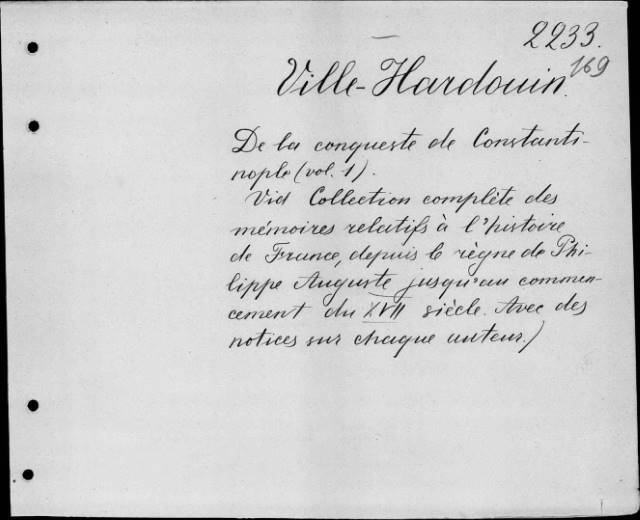 2233.
169
Ville-Hardouin.
De la conqueste de Constanti-
nople (vol. 1).
Vid Collection complète des
mémoires relatifs à l'histoire
de France, depuis le règne de Phi-
lippe Auguste jusqu'au commen-
cement du XVII siècle. Avec des
notices sur chaque auteur.)